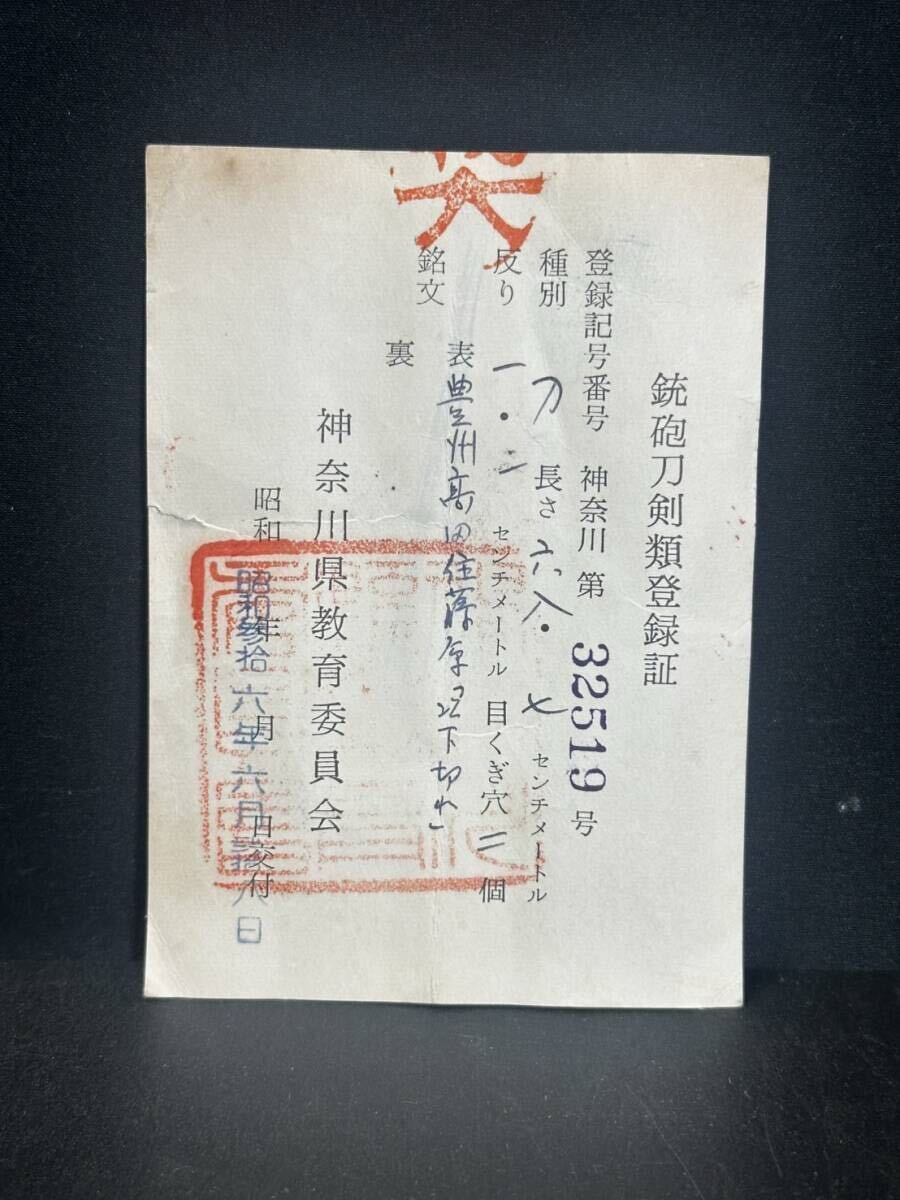 銃砲刀剣類登録証
登録記号番号 神奈川 第 32519 号
種別 刀 長さ 六八・七 センチメートル
反り 一・一 センチメートル 目くぎ穴 二 個
銘文 表 豊州高田住藤原 以下切れ
裏
神奈川県教育委員会
昭和 年 月 日交付
昭和参拾六年六月 八日